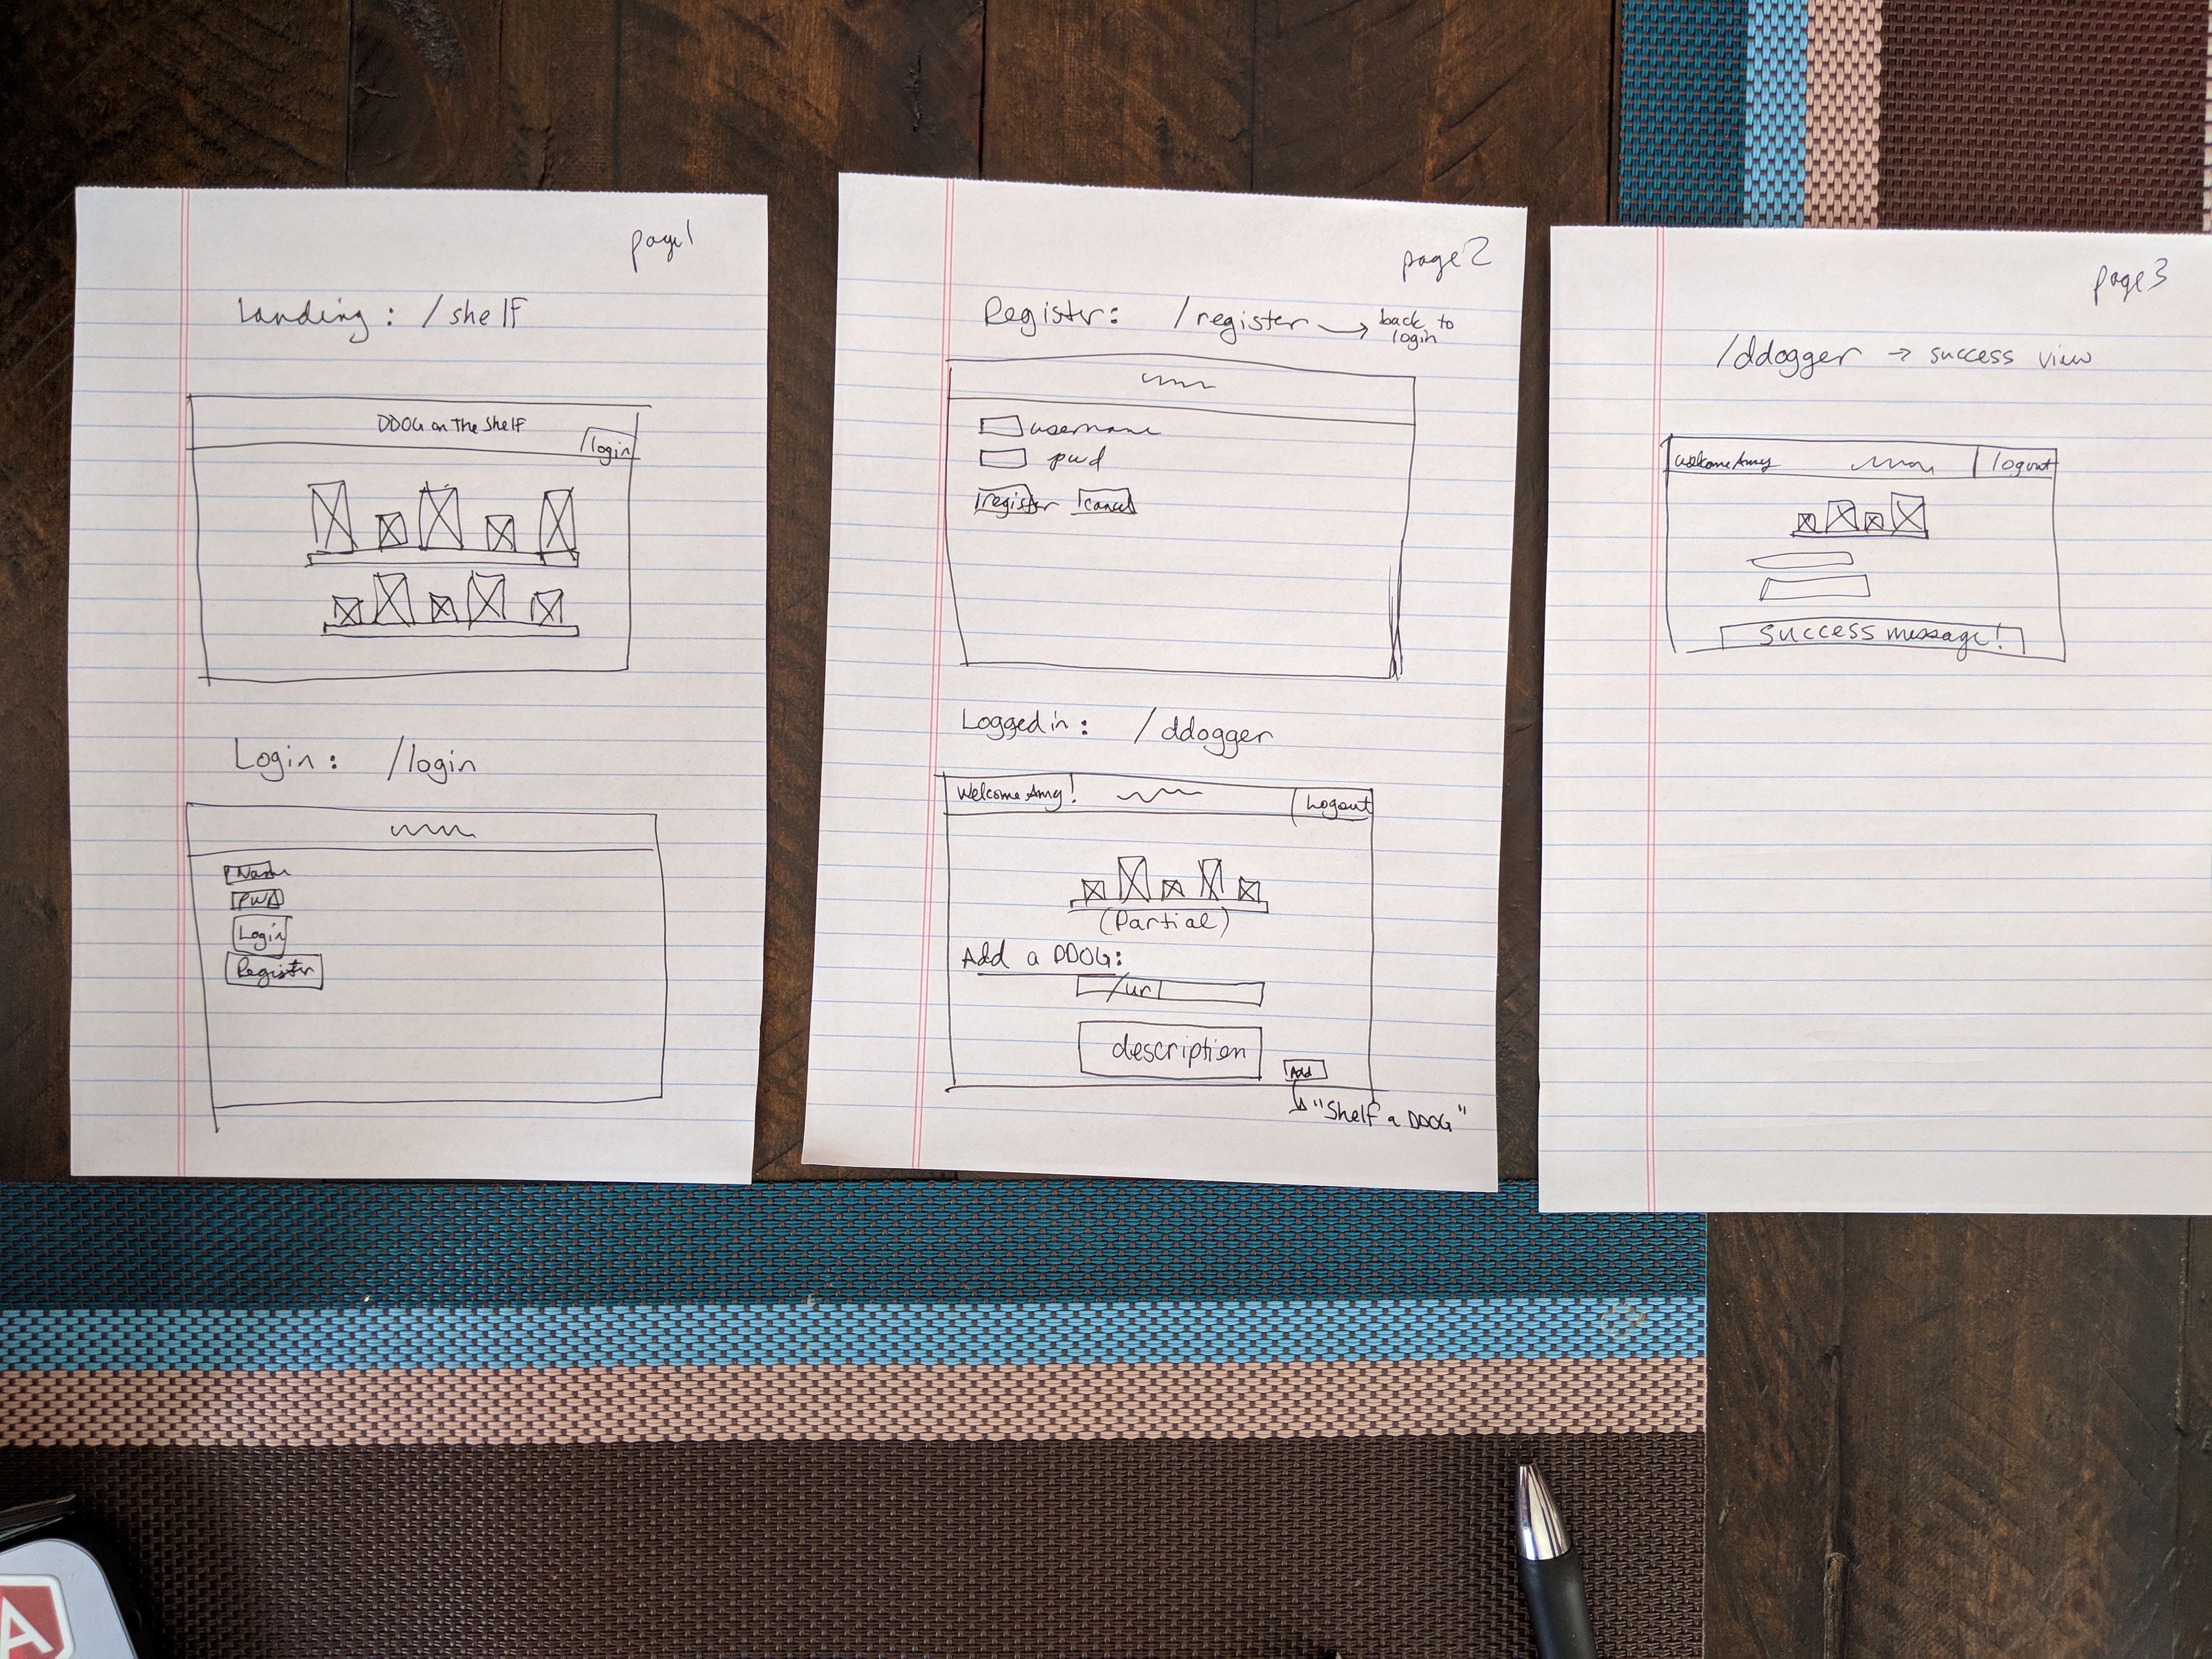 page1
Landing: /shelf
DDOG on The Shelf
login
Login: /login
Name
PWD
Login
Register
page2
Register: /register → back to
login
username
pwd
register cancel
Logged in: /ddogger
Welcome Amy! Logout
(Partial)
Add a DDOG:
/url
description
Add
"Shelf a DDOG"
page3
/ddogger → success view
Welcome Amy logout
success message!
A